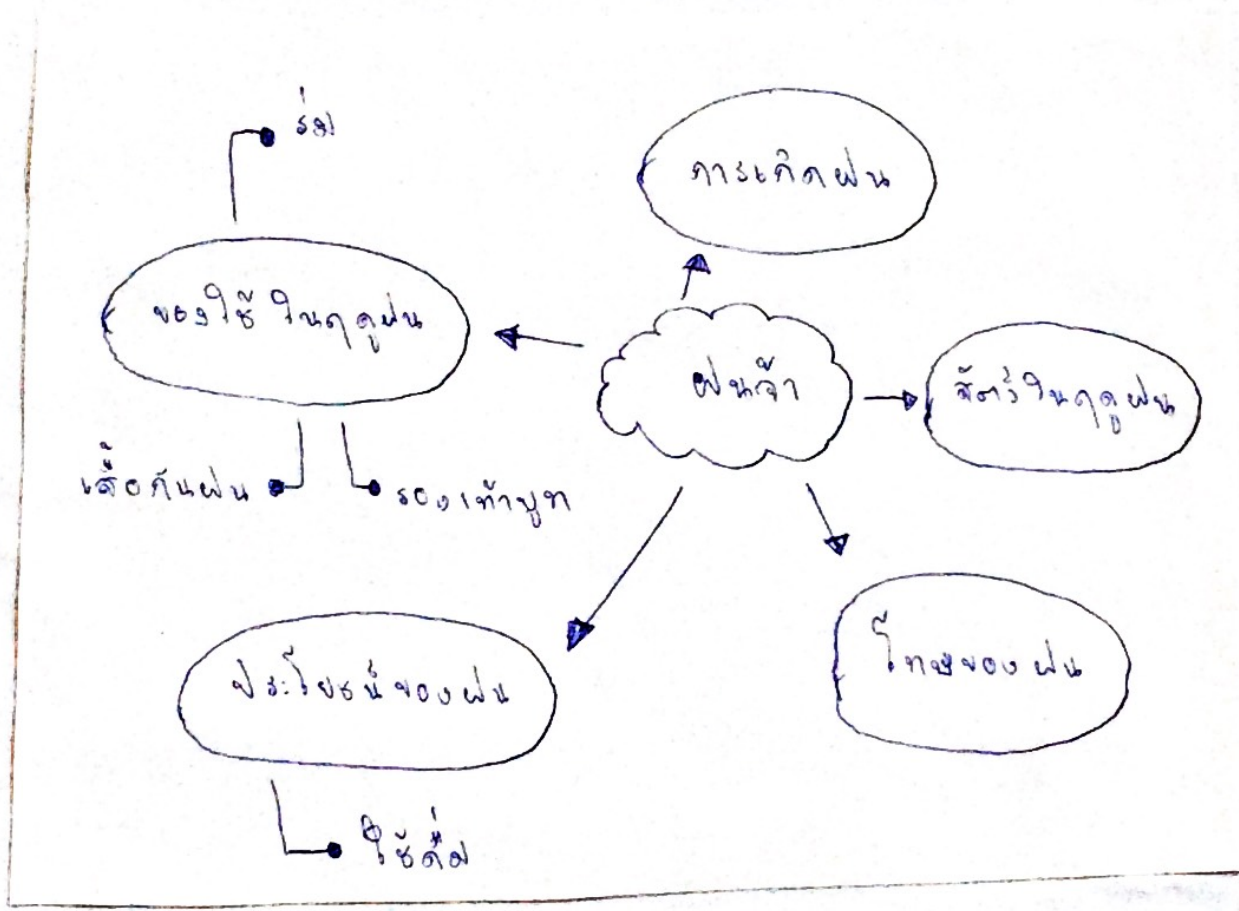 ร่ม
การเกิดฝน
ของใช้ในฤดูฝน
ฝนจ๋า
สัตว์ในฤดูฝน
เสื้อกันฝน
รองเท้าบูท
ประโยชน์ของฝน
โทษของฝน
ใช้ดื่ม